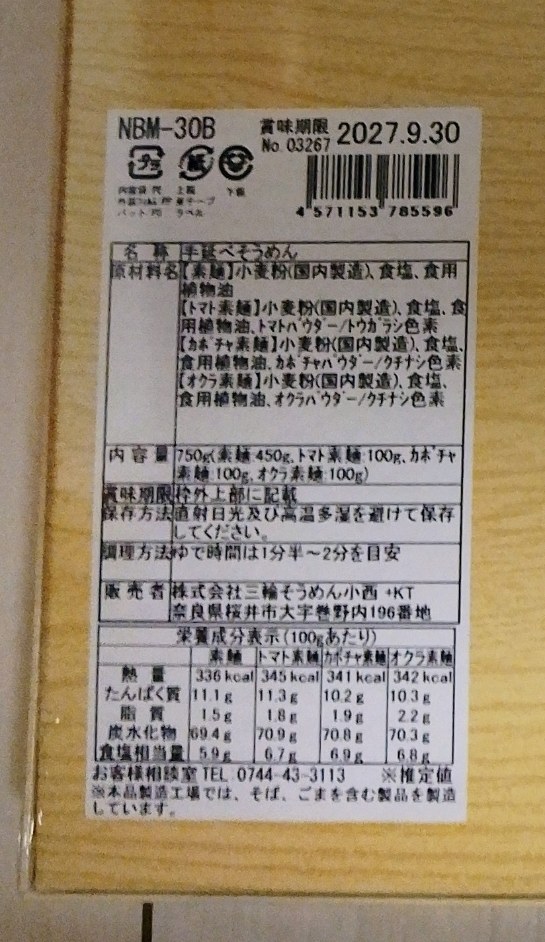 NBM-30B
賞味期限 2027.9.30
No.03267
プラ 紙
上箱 下箱
4 571153 785596
名称 手延べそうめん
原材料名 【素麺】小麦粉(国内製造)、食塩、食用
植物油
【トマト素麺】小麦粉(国内製造)、食塩、食
用植物油、トマトパウダー/トウガラシ色素
【カボチャ素麺】小麦粉(国内製造)、食塩、
食用植物油、カボチャパウダー/クチナシ色素
【オクラ素麺】小麦粉(国内製造)、食塩、
食用植物油、オクラパウダー/クチナシ色素
内容量 750g(素麺:450g、トマト素麺:100g、カボチャ
素麺:100g、オクラ素麺:100g)
賞味期限 枠外上部に記載
保存方法 直射日光及び高温多湿を避けて保存
してください。
調理方法 ゆで時間は1分半~2分を目安
販売者 株式会社三輪そうめん小西 +KT
奈良県桜井市大字巻野内196番地
栄養成分表示(100gあたり)
素麺 トマト素麺 カボチャ素麺 オクラ素麺
熱量 336 kcal 345 kcal 341 kcal 342 kcal
たんぱく質 11.1g 11.3g 10.2g 10.3g
脂質 1.5g 1.8g 1.9g 2.2g
炭水化物 69.4g 70.9g 70.8g 70.3g
食塩相当量 5.9g 6.7g 6.9g 6.8g
お客様相談室 TEL 0744-43-3113 ※推定値
※本品製造工場では、そば、ごまを含む製品を製造
しています。